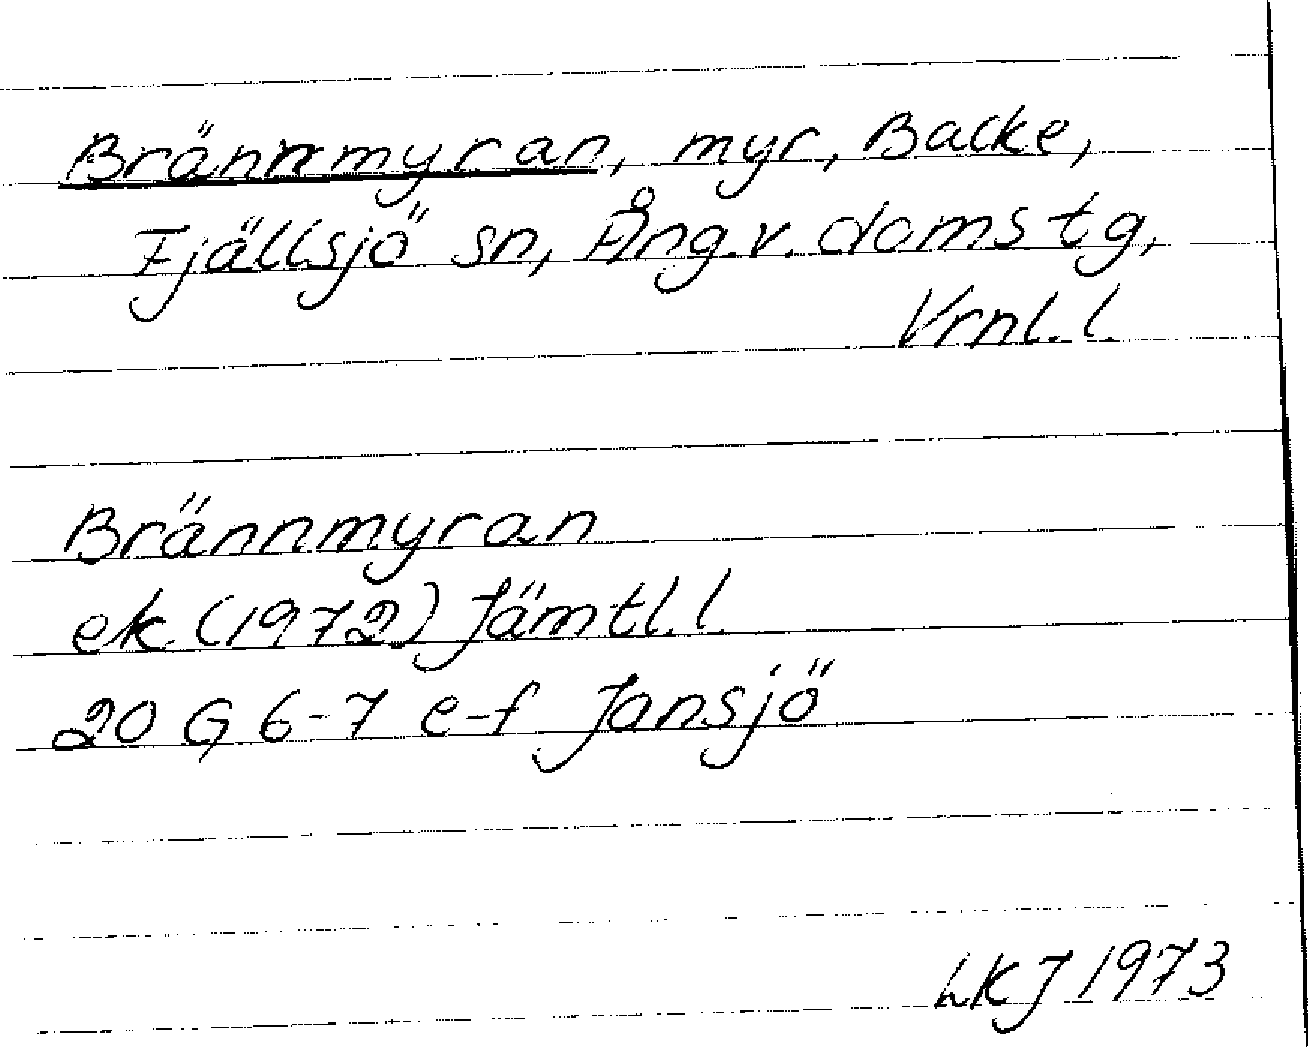 Brännmyran, myr, Backe,
Fjällsjö sn, Ång.v. domstg,
Vrnl. l.
Brännmyran
ek. (1972) Jämtl. l.
20 G 6-7 e-f Jansjö
LKJ 1973